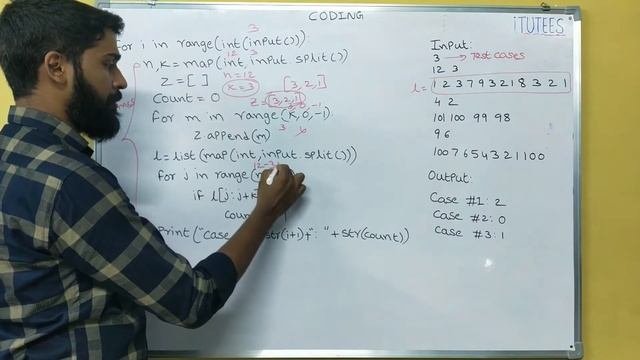 CODING
iTUTEES
for i in range(int(input())):
3
n,k=map(int,input.split())
12 3
z=[ ] n=12 [3,2,1]
k=3
count=0 z=[3,2,1]
for m in range(k,0,-1):
3, 0, -1
z.append(m) 3
l=list(map(int,input.split()))
12-3
for j in range(n
if l[j:j+k
coun
print("case str(i+1)+": "+str(count))
Input:
3 → Test cases
12 3
l= 1 2 3 7 9 3 2 1 8 3 2 1
4 2
101 100 99 98
9 6
100 7 6 5 4 3 2 1 100
Output:
Case #1: 2
Case #2: 0
Case #3: 1